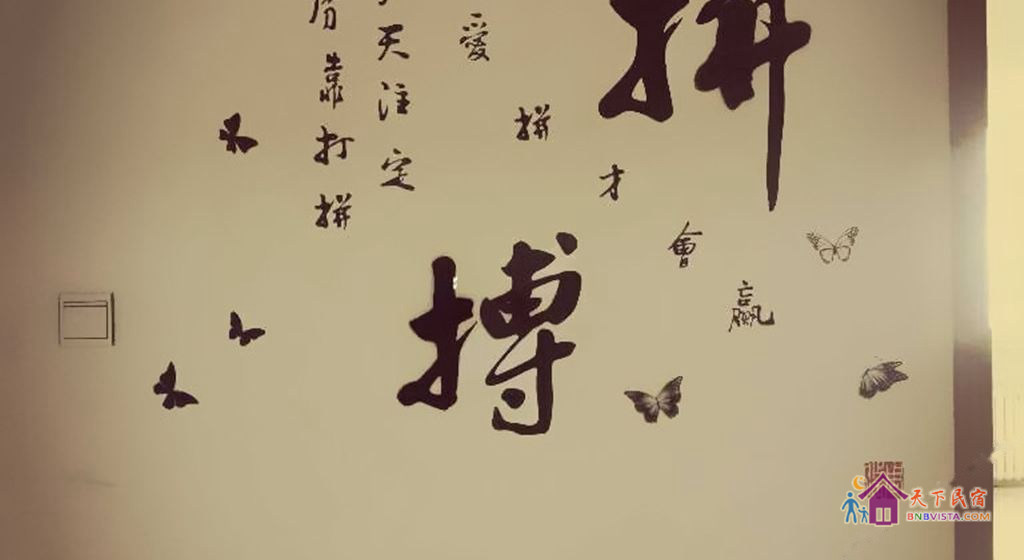 拼
搏
愛
拼
才
會
贏
天注定
靠打拼
天下民宿
BNBVISTA.COM